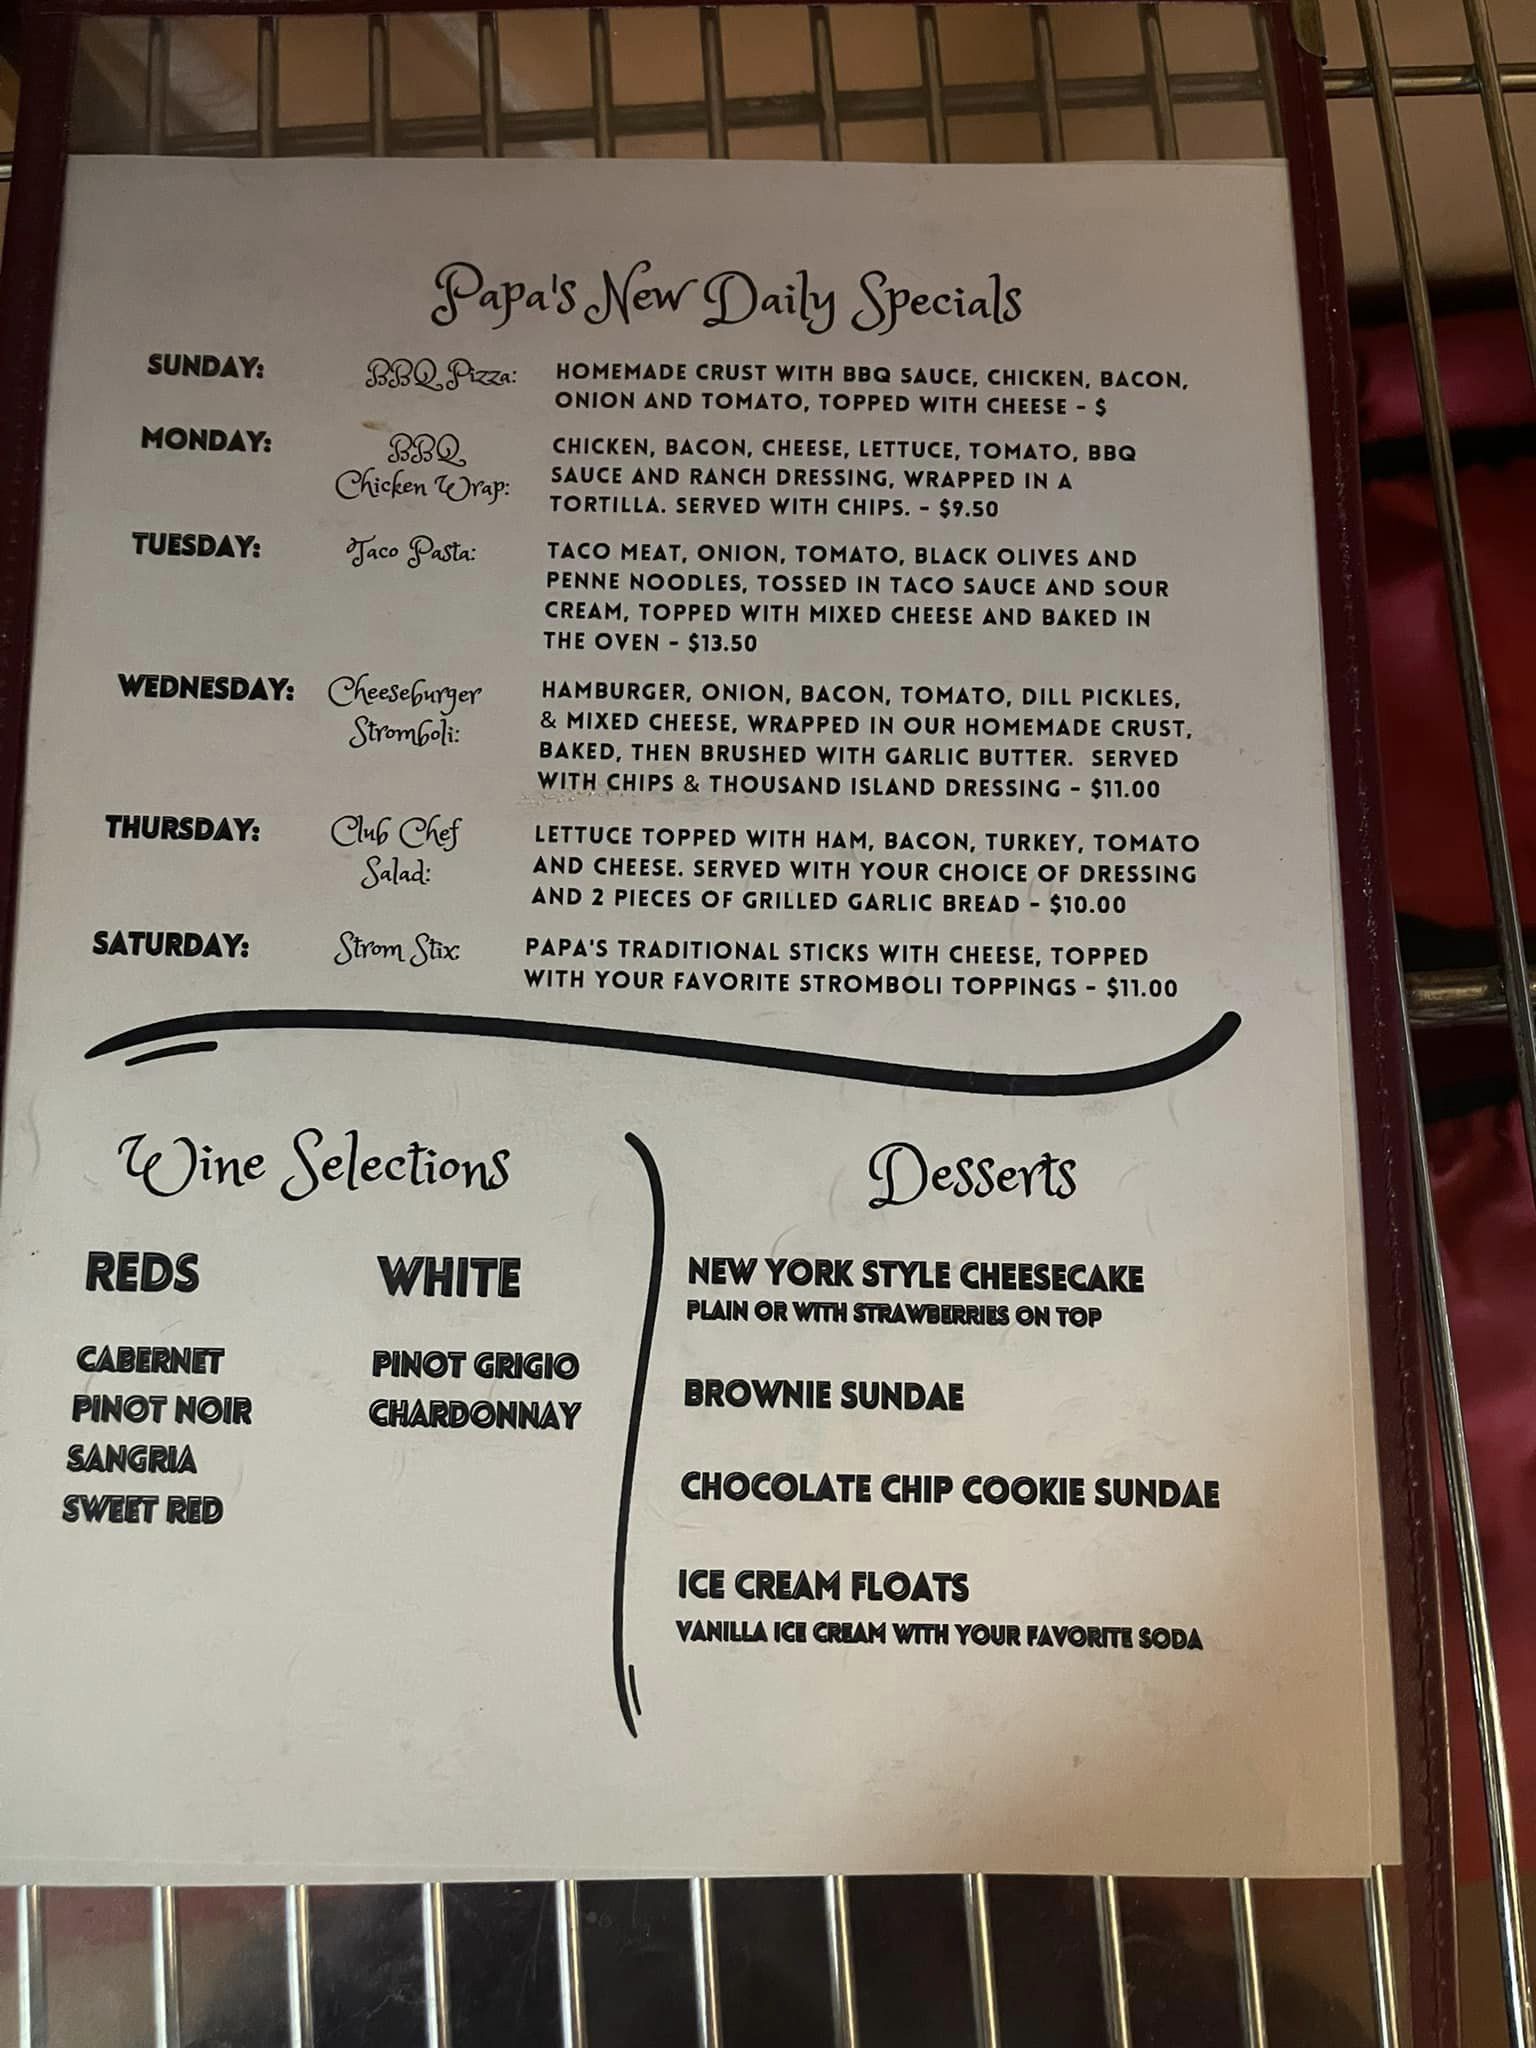 Papa's New Daily Specials
SUNDAY: BBQ Pizza: HOMEMADE CRUST WITH BBQ SAUCE, CHICKEN, BACON,
ONION AND TOMATO, TOPPED WITH CHEESE - $
MONDAY: BBQ CHICKEN, BACON, CHEESE, LETTUCE, TOMATO, BBQ
Chicken Wrap: SAUCE AND RANCH DRESSING, WRAPPED IN A
TORTILLA. SERVED WITH CHIPS. - $9.50
TUESDAY: Taco Pasta: TACO MEAT, ONION, TOMATO, BLACK OLIVES AND
PENNE NOODLES, TOSSED IN TACO SAUCE AND SOUR
CREAM, TOPPED WITH MIXED CHEESE AND BAKED IN
THE OVEN - $13.50
WEDNESDAY: Cheeseburger HAMBURGER, ONION, BACON, TOMATO, DILL PICKLES,
Stromboli: & MIXED CHEESE, WRAPPED IN OUR HOMEMADE CRUST,
BAKED, THEN BRUSHED WITH GARLIC BUTTER. SERVED
WITH CHIPS & THOUSAND ISLAND DRESSING - $11.00
THURSDAY: Club Chef LETTUCE TOPPED WITH HAM, BACON, TURKEY, TOMATO
Salad: AND CHEESE. SERVED WITH YOUR CHOICE OF DRESSING
AND 2 PIECES OF GRILLED GARLIC BREAD - $10.00
SATURDAY: Strom Stix: PAPA'S TRADITIONAL STICKS WITH CHEESE, TOPPED
WITH YOUR FAVORITE STROMBOLI TOPPINGS - $11.00
Wine Selections
REDS
CABERNET
PINOT NOIR
SANGRIA
SWEET RED
WHITE
PINOT GRIGIO
CHARDONNAY
Desserts
NEW YORK STYLE CHEESECAKE
PLAIN OR WITH STRAWBERRIES ON TOP
BROWNIE SUNDAE
CHOCOLATE CHIP COOKIE SUNDAE
ICE CREAM FLOATS
VANILLA ICE CREAM WITH YOUR FAVORITE SODA